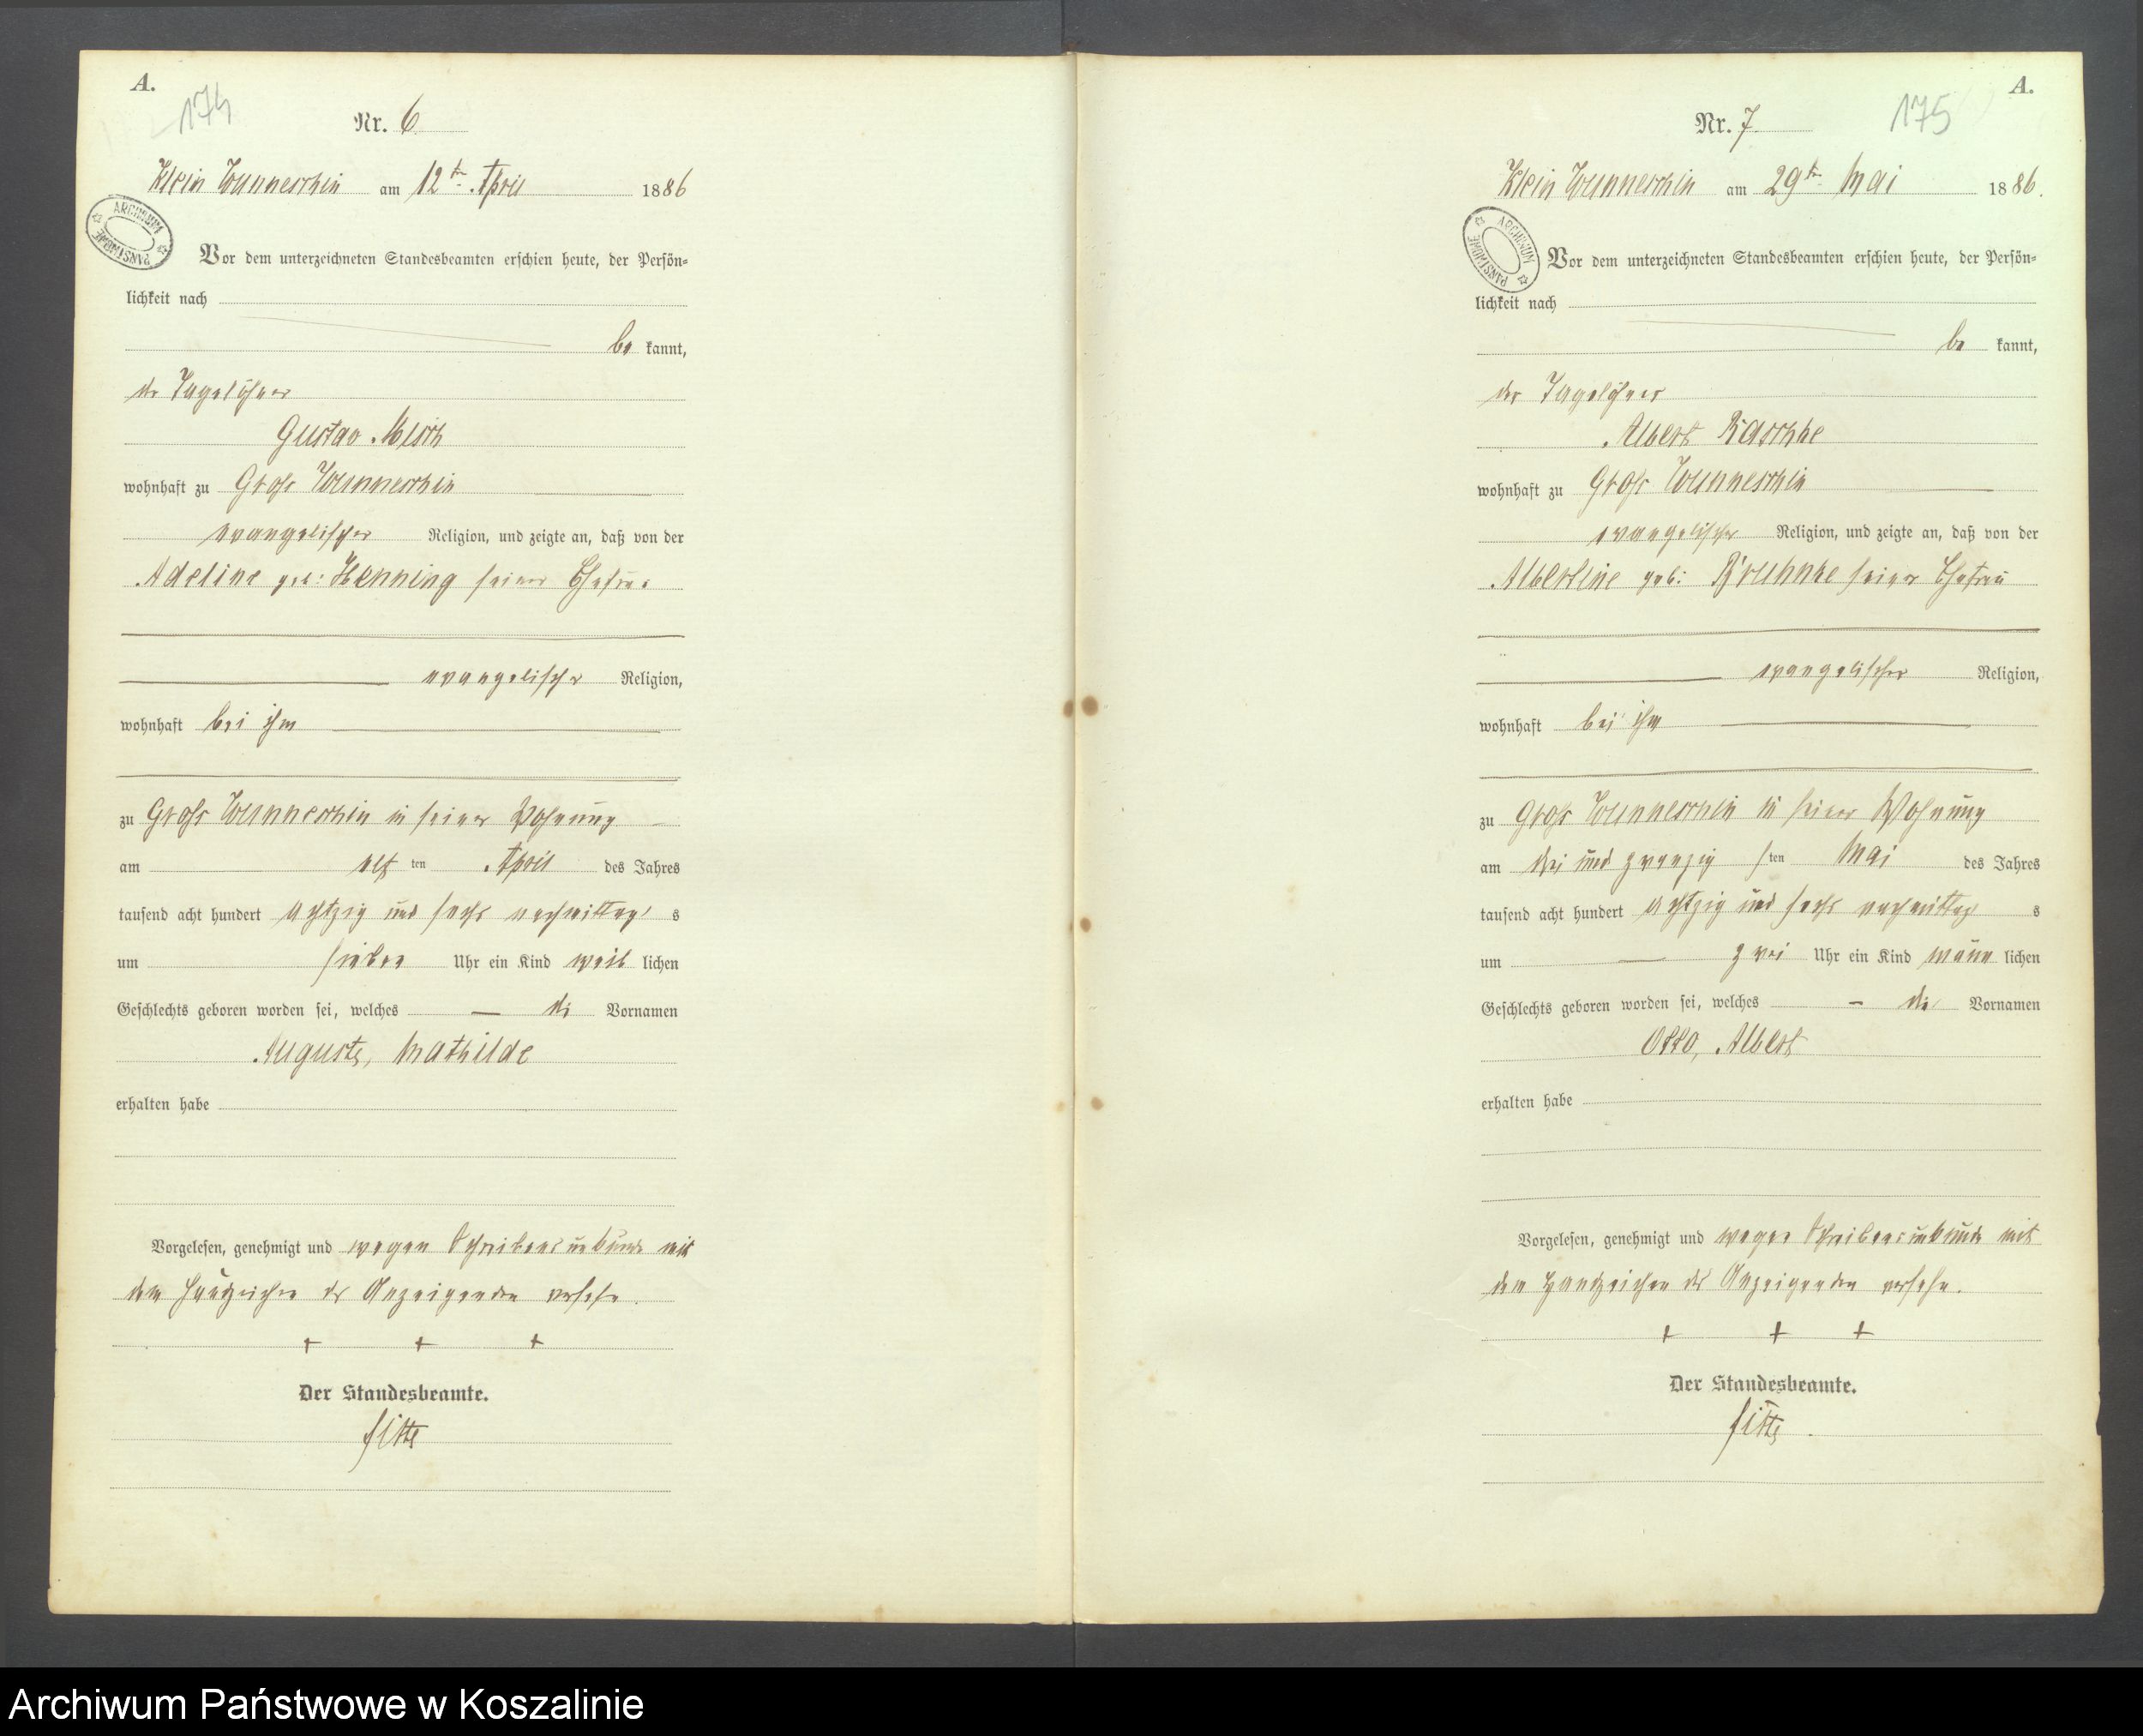 A.
174
Nr. 6
Klein Wunneschin am 12te April 1886
ARCHIWUM PAŃSTWOWE
Vor dem unterzeichneten Standesbeamten erschien heute, der Persön-
lichkeit nach
be kannt,
der Tagelöhner
Gustav Mesch
wohnhaft zu Groß Wunneschin
evangelischer Religion, und zeigte an, daß von der
Adeline geb: Henning seiner Ehefrau
evangelischer Religion,
wohnhaft bei ihm
zu Groß Wunneschin in seiner Wohnung
am elf ten April des Jahres
tausend acht hundert achtzig und sechs nachmittag s
um sieben Uhr ein Kind weib lichen
Geschlechts geboren worden sei, welches die Vornamen
Auguste, Mathilde
erhalten habe
Vorgelesen, genehmigt und wegen Schreibensunkunde mit
dem Handzeichen des Anzeigenden versehen.
+ + +
Der Standesbeamte.
A.
175
Nr. 7.
Klein Wunneschin am 29te Mai 1886.
ARCHIWUM PAŃSTWOWE
Vor dem unterzeichneten Standesbeamten erschien heute, der Persön-
lichkeit nach
be kannt,
der Tagelöhner
Albert Raschke
wohnhaft zu Groß Wunneschin
evangelischer Religion, und zeigte an, daß von der
Albertine geb: seiner Ehefrau
evangelischer Religion,
wohnhaft bei ihm
zu Groß Wunneschin in seiner Wohnung
am drei und zwanzig sten Mai des Jahres
tausend acht hundert achtzig und sechs nachmittag s
um zwei Uhr ein Kind männ lichen
Geschlechts geboren worden sei, welches die Vornamen
Otto, Albert
erhalten habe
Vorgelesen, genehmigt und wegen Schreibensunkunde mit
dem Handzeichen des Anzeigenden versehen.
+ + +
Der Standesbeamte.
Archiwum Państwowe w Koszalinie